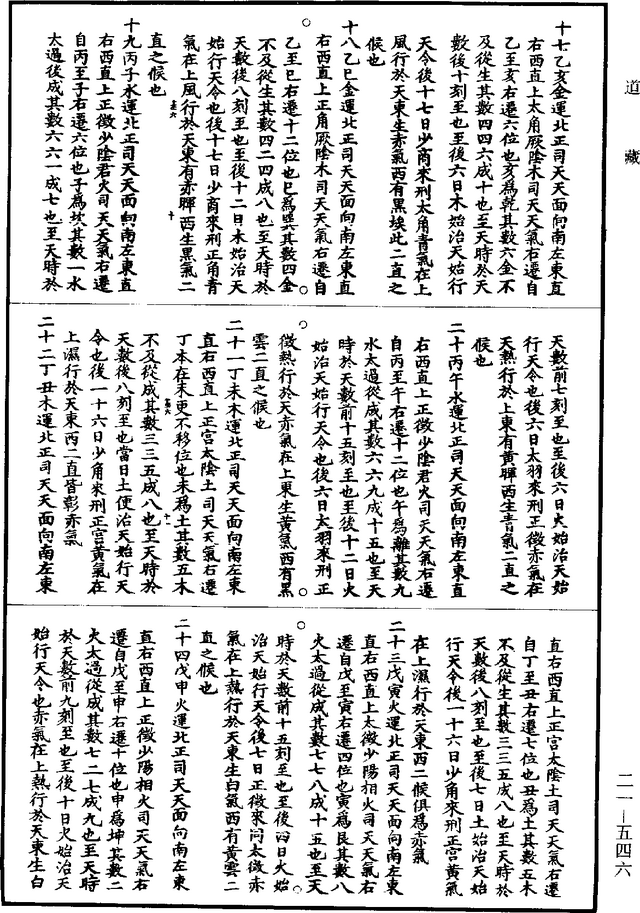 道藏
十七乙亥金運北正司天天面向南左東直
右西直上太角厥陰木司天天氣右遷自
乙至亥右遷六位也亥為乾其數六金不
及從生其數四四六成十也至天時於天
數後十刻至也至後六日木始治天始行
天令後十七日少商來刑太角青氣在上
風行於天東生赤氣西有黑埃此二直之
候也
十八乙巳金運北正司天天面向南左東直
右西直上正角厥陰木司天天氣右遷自
乙至巳右遷十二位也巳為巽其數四金
不及從生其數四二四成八也至天時於
天數後八刻至也至後十二日木始治天
始行天令也後十七日少商來刑正角青
氣在上風行於天東有赤暉西生黑氣二
直之候也
十九丙子水運北正司天天面向南左東直
右西直上正徵少陰君火司天天氣右遷
自丙至子右遷六位也子為坎其數一水
太過後成其數六六一成七也至天時於
天數前七刻至也至後六日火始治天始
行天令也後六日太羽來刑正徵赤氣在
天熱行於上東有黃暉西生青氣二直之
候也
二十丙午水運北正司天天面向南左東直
右西直上正徵少陰君火司天天氣右遷
自丙至午右遷十二位也午為離其數九
水太過從成其數六六九成十五也至天
時於天數前十五刻至也至後十二日火
始治天始行天令也後六日太羽來刑正
徵熱行於天赤氣在上東生黃氣西有黑
雲二直之候也
二十一丁未木運北正司天天面向南左東
直右西直上正宮太陰土司天天氣右遷
丁本在未更不移位也未為土其數五木
不及從成其數三三五成八也至天時於
天數後八刻至也當日土便治天始行天
令也後一十六日少角來刑正宮黃氣在
上濕行於天東西二直皆彰赤氣
二十二丁丑木運北正司天天面向南左東
直右西直上正宮太陰土司天天氣右遷
自丁至丑右遷七位也丑為土其數五木
不及從生其數三三五成八也至天時於
天數後八刻至也至後七日土始治天始
行天令後一十六日少角來刑正宮黃氣
在上濕行於天東西二候俱為赤氣
二十三戊寅火運北正司天天面向南左東
直右西直上太徵少陽相火司天天氣右
遷自戊至寅右遷四位也寅為艮其數八
火太過從成其數七七八成十五也至天
時於天數前十五刻至也至後四日火始
治天始行天令後七日正徵來同太徵赤
氣在上熱行於天東生白氣西有黃雲二
直之候也
二十四戊申火運北正司天天面向南左東
直右西直上正徵少陽相火司天天氣右
遷自戊至申右遷十位也申為坤其數二
火太過從成其數七二七成九也至天時
於天數前九刻至也至後十日火始治天
始行天令也赤氣在上熱行於天東生白
二一—五四六